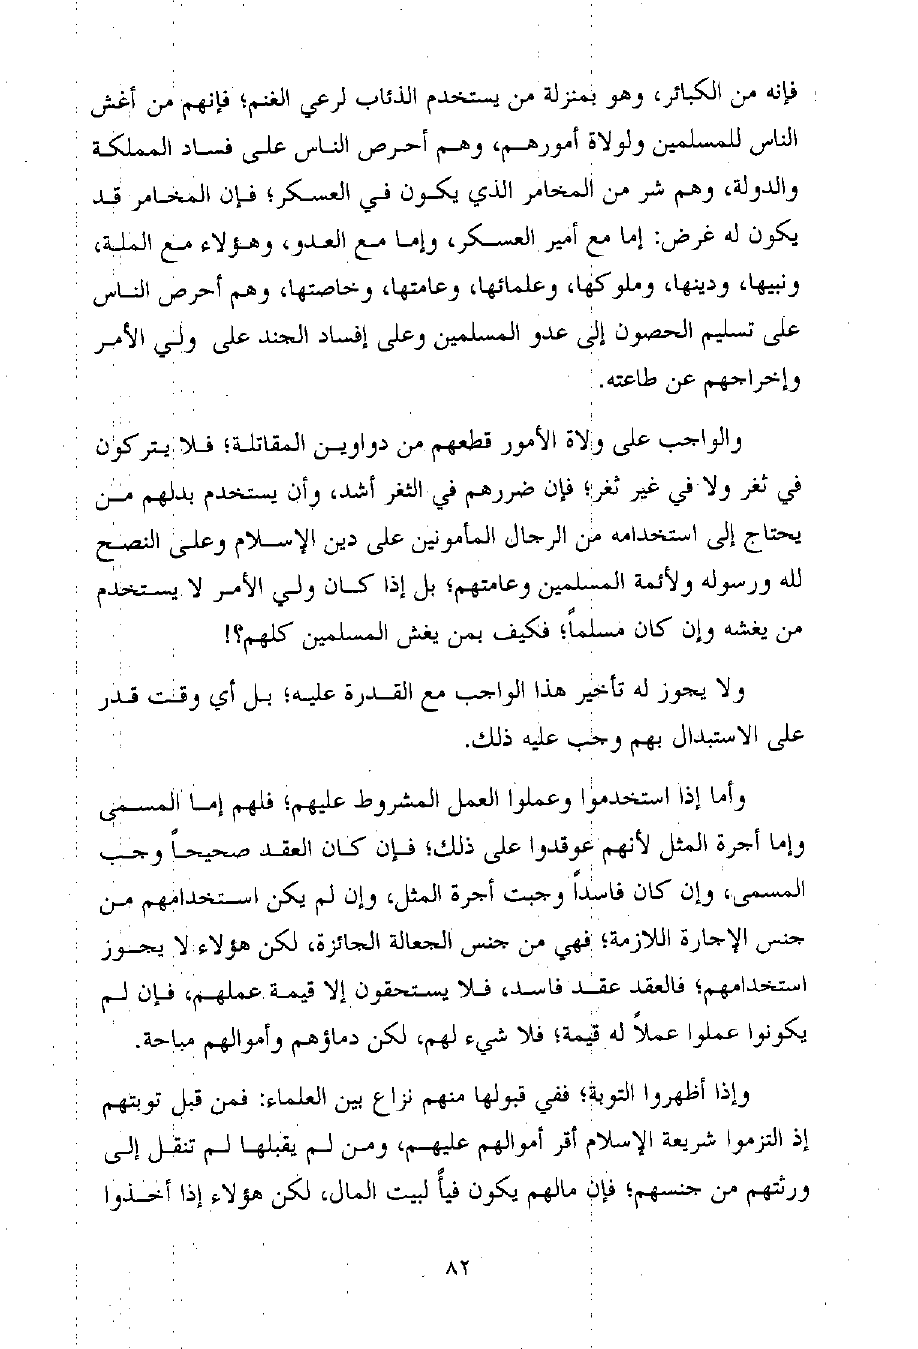 فإنه من الكبائر، وهو بمنزلة من يستخدم الذئاب لرعي الغنم؛ فإنهم من أغش
الناس للمسلمين ولولاة أمورهم، وهم أحرص الناس على فساد المملكة
والدولة، وهم شر من المخامر الذي يكون في العسكر؛ فإن المخامر قد
يكون له غرض: إما مع أمير العسكر، وإما مع العدو، وهؤلاء مع الملة،
ونبيها، ودينها، وملوكها، وعلمائها، وعامتها، وخاصتها، وهم أحرص الناس
على تسليم الحصون إلى عدو المسلمين وعلى إفساد الجند على ولي الأمر
وإخراجهم عن طاعته.
والواجب على ولاة الأمور قطعهم من دواوين المقاتلة؛ فلا يتركون
في ثغر ولا في غير ثغر؛ فإن ضررهم في الثغر أشد، وأن يستخدم بدلهم من
يحتاج إلى استخدامه من الرجال المأمونين على دين الإسلام وعلى النصح
لله ورسوله ولأئمة المسلمين وعامتهم؛ بل إذا كان ولي الأمر لا يستخدم
من يغشه وإن كان مسلماً؛ فكيف بمن يغش المسلمين كلهم؟!
ولا يجوز له تأخير هذا الواجب مع القدرة عليه؛ بل أي وقت قدر
على الاستبدال بهم وجب عليه ذلك.
وأما إذا استخدموا وعملوا العمل المشروط عليهم؛ فلهم إما المسمى
وإما أجرة المثل لأنهم عوقدوا على ذلك؛ فإن كان العقد صحيحاً وجب
المسمى، وإن كان فاسداً وجبت أجرة المثل، وإن لم يكن استخدامهم من
جنس الإجارة اللازمة؛ فهي من جنس الجعالة الجائزة، لكن هؤلاء لا يجوز
استخدامهم؛ فالعقد عقد فاسد، فلا يستحقون إلا قيمة عملهم، فإن لم
يكونوا عملوا عملاً له قيمة؛ فلا شيء لهم، لكن دماؤهم وأموالهم مباحة.
وإذا أظهروا التوبة؛ ففي قبولها منهم نزاع بين العلماء: فمن قبل توبتهم
إذ التزموا شريعة الإسلام أقر أموالهم عليهم، ومن لم يقبلها لم تنقل إلى
ورثتهم من جنسهم؛ فإن مالهم يكون فيأً لبيت المال، لكن هؤلاء إذا أخذوا
٨٢